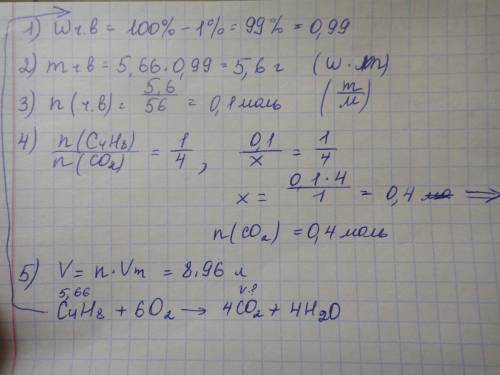 1) Wч.в = 100% - 1% = 99% = 0,99
2) mч.в = 5,66 · 0,99 = 5,6 г (w · m)
3) n (ч.в) = 5,6/56 = 0,1 моль (m/M)
4) n(C4H8)/n(CO2) = 1/4, 0,1/x = 1/4
x = 0,1·4/1 = 0,4 ⇒
n(CO2) = 0,4 моль
5) V = n · Vm = 8,96 л
5,66 V-?
C4H8 + 6O2 → 4CO2 + 4H2O